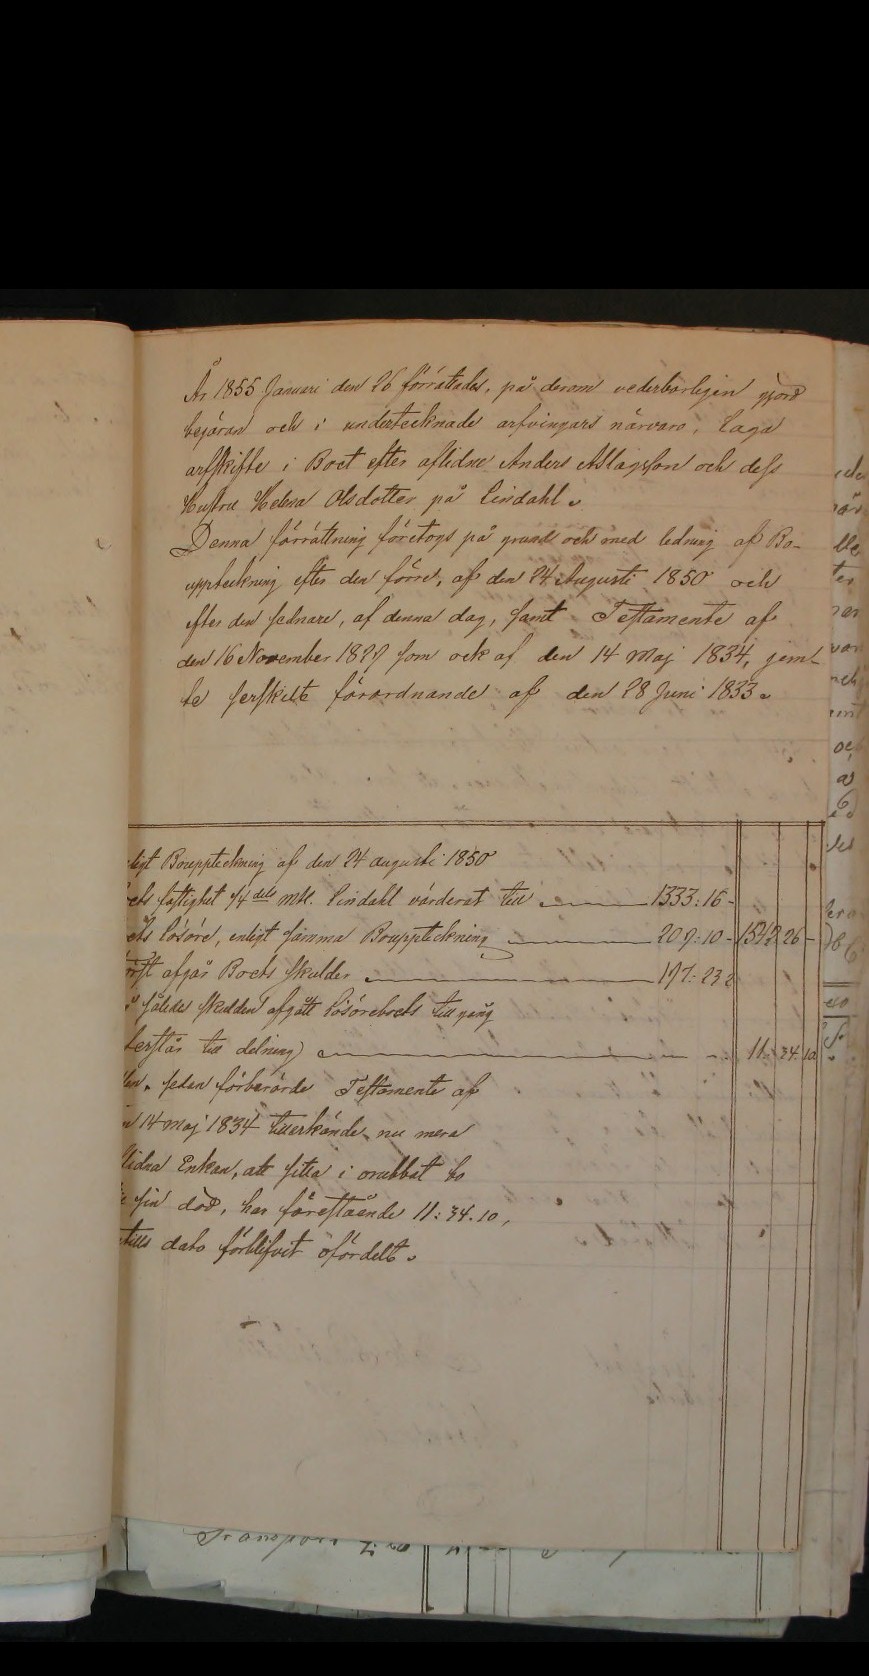 År 1855 Januari den 26 förrättades, på derom vederbörligen gjord
begäran och i undertecknade arfvingars närvaro, Laga
arfskifte i Boet efter aflidne Anders Aslagsson och dess
Hustru Helena Olsdotter på Lindahl.
Denna förrättning företogs på grund och med ledning af Bo-
uppteckning efter den förre, af den 24 Augusti 1850 och
efter den sednare, af denna dag, samt Testamente af
den 16 November 1829 som ock af den 14 Maj 1834, jem-
te serskilt förordnande af den 28 Juni 1833.
ligt Bouppteckning af den 24 augusti 1850
ets fastighet 1/4 dels mtl. Lindahl värderat till 1333: 16 -
ets lösöre, enligt samma Bouppteckning 209: 10 - 1542 26 -
afgår Boets skulder 197: 23 2
således skulden afgått lösöreboets tillgång
berstår till delning) 11: 34. 10
sedan förberörde Testamente af
14 maj 1834 tillerkände, nu mera
lidna Enkan, att sitta i orubbat bo
sin död, har förestående 11: 34. 10,
tills dato förblifvit ofördelt.
Transport